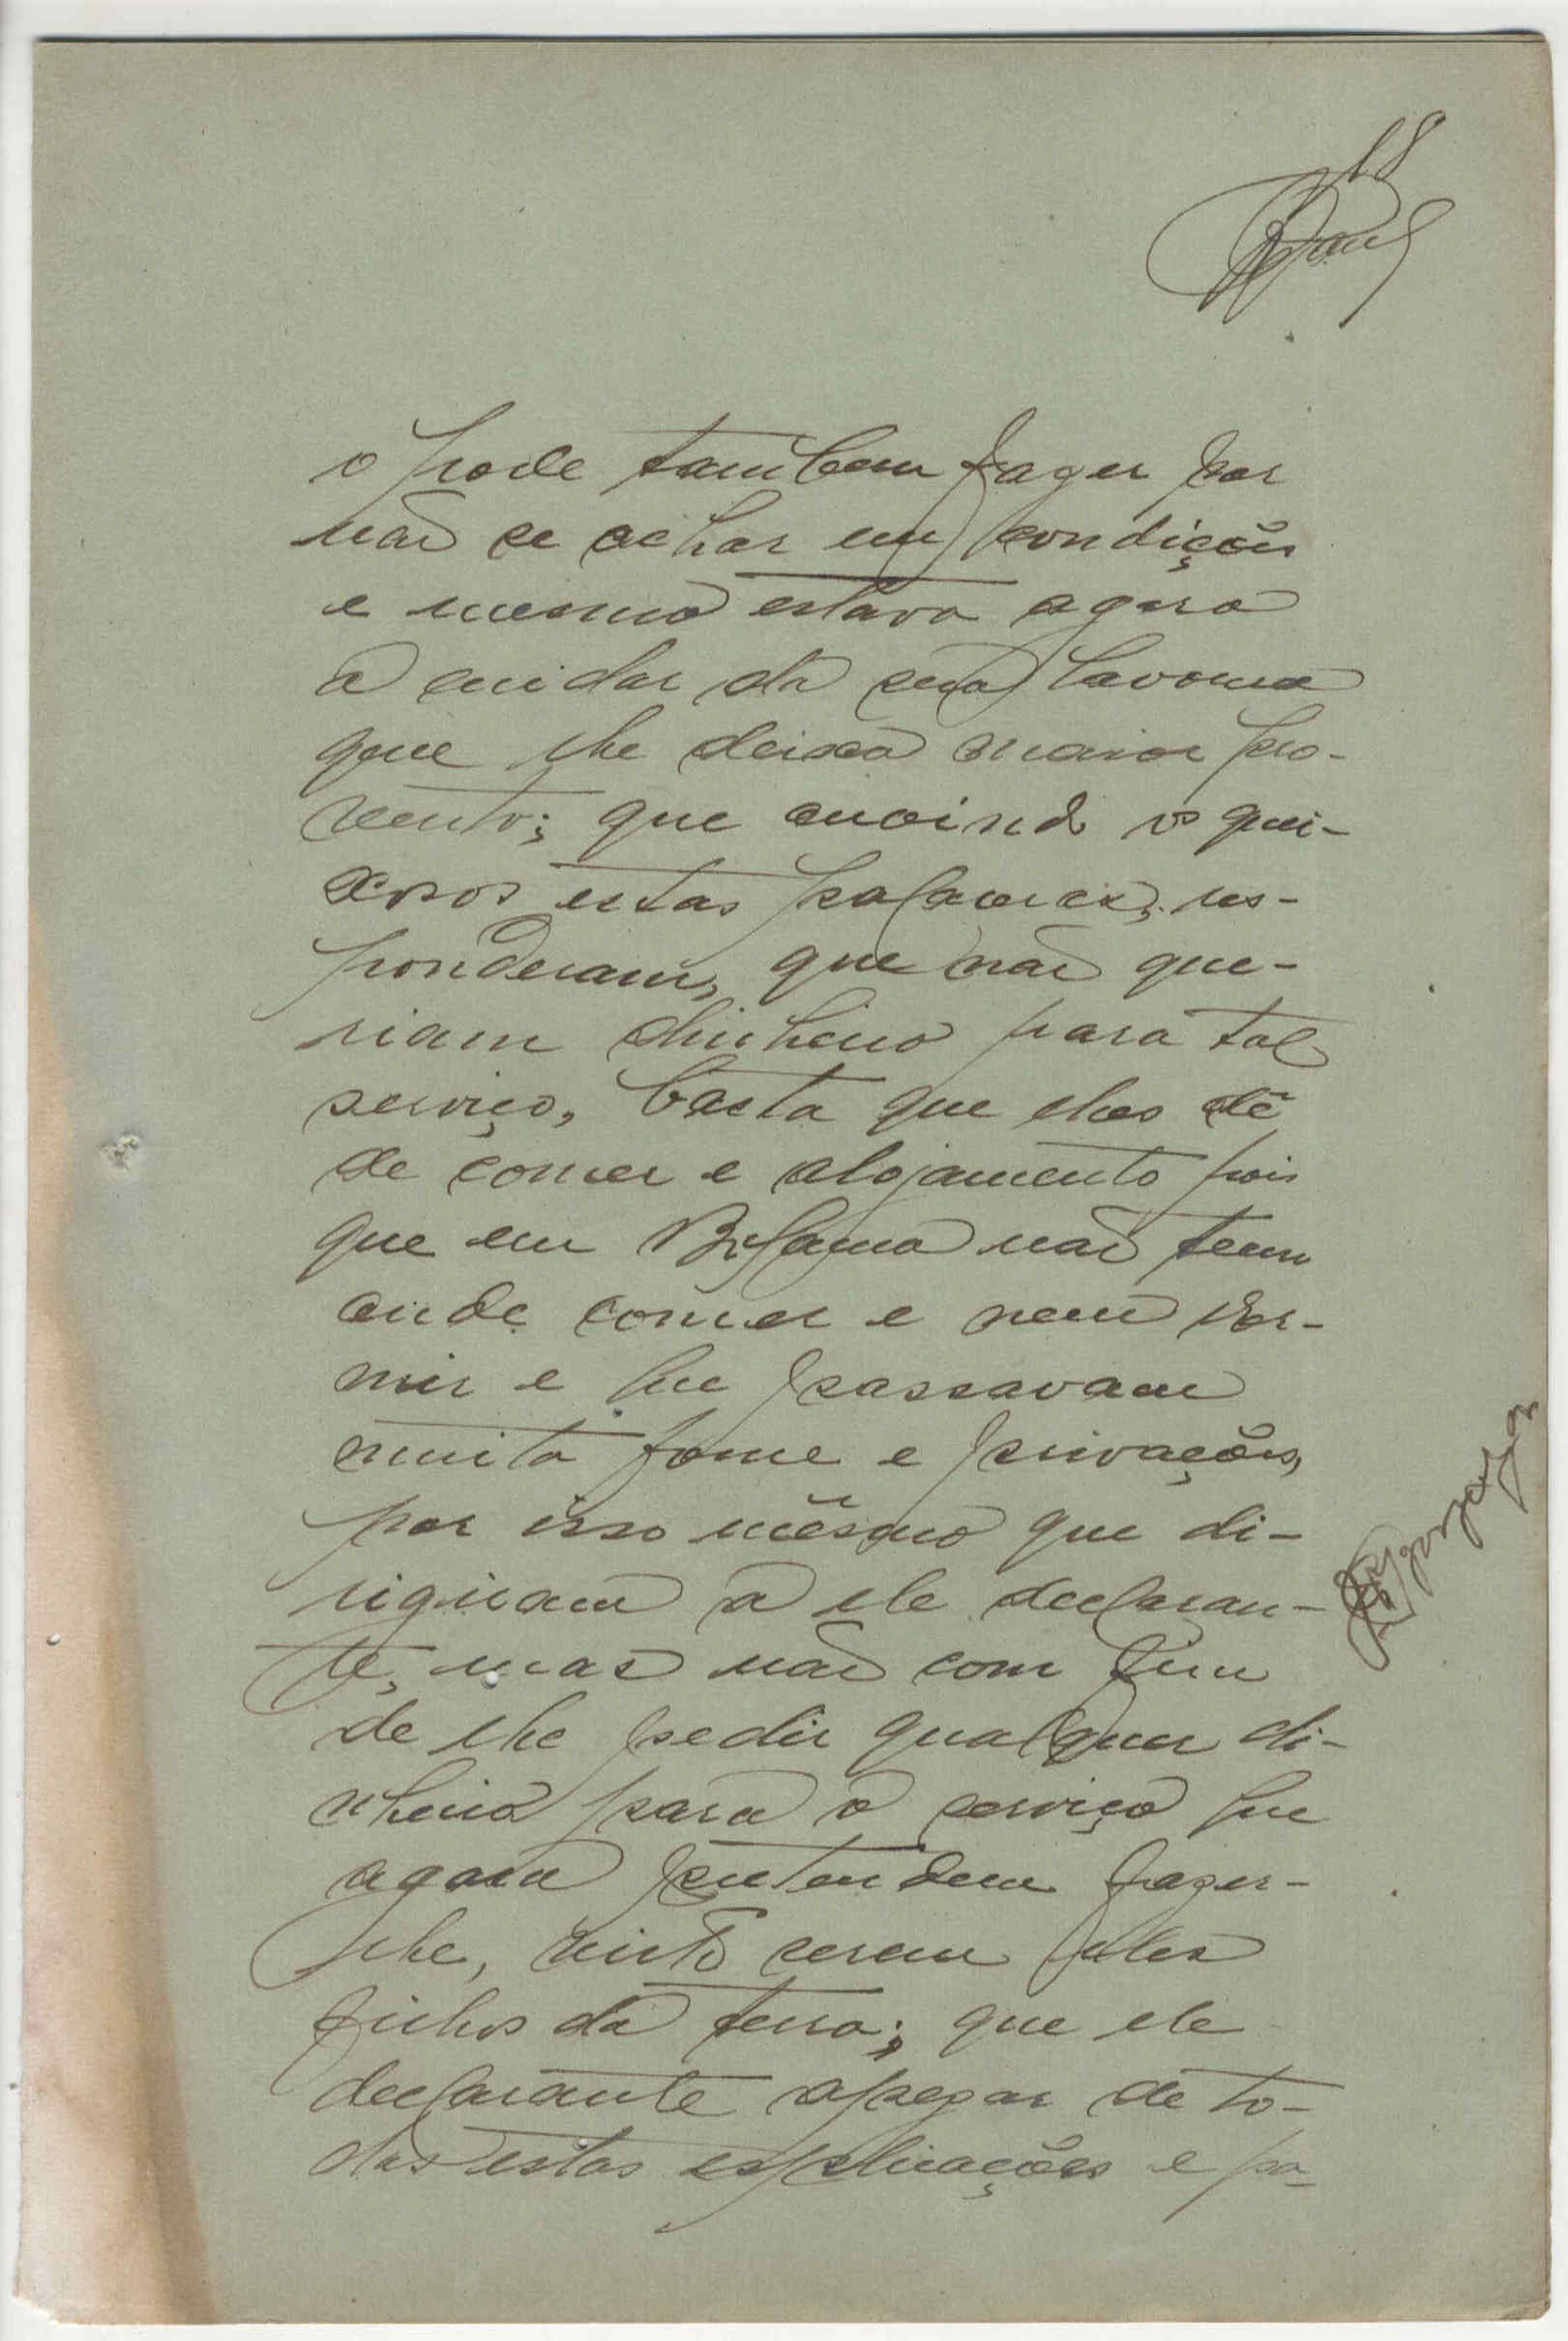 18
o pode tambem fazer por
não se achar em condições
e mesmo estava agora
a cuidar da sua lavoura
que lhe deixa maior pro-
vento; que ouvindo os quei-
xosos estas palavras, res-
ponderam, que não que-
riam dinheiro para tal
serviço, basta que lhes dê
de comer e alojamento pois
que em Bolama não tem
onde comer e nem dor-
mir e que passavam
muita fome e privações,
por isso mesmo que di-
rigiram a ele declaran-
te, mas não com fim
de lhe pedir qualquer di-
nheiro para o serviço que
agora pretendem fazer-
lhe, visto serem eles
filhos da terra; que ele
declarante apezar de to-
das estas explicações e pa-